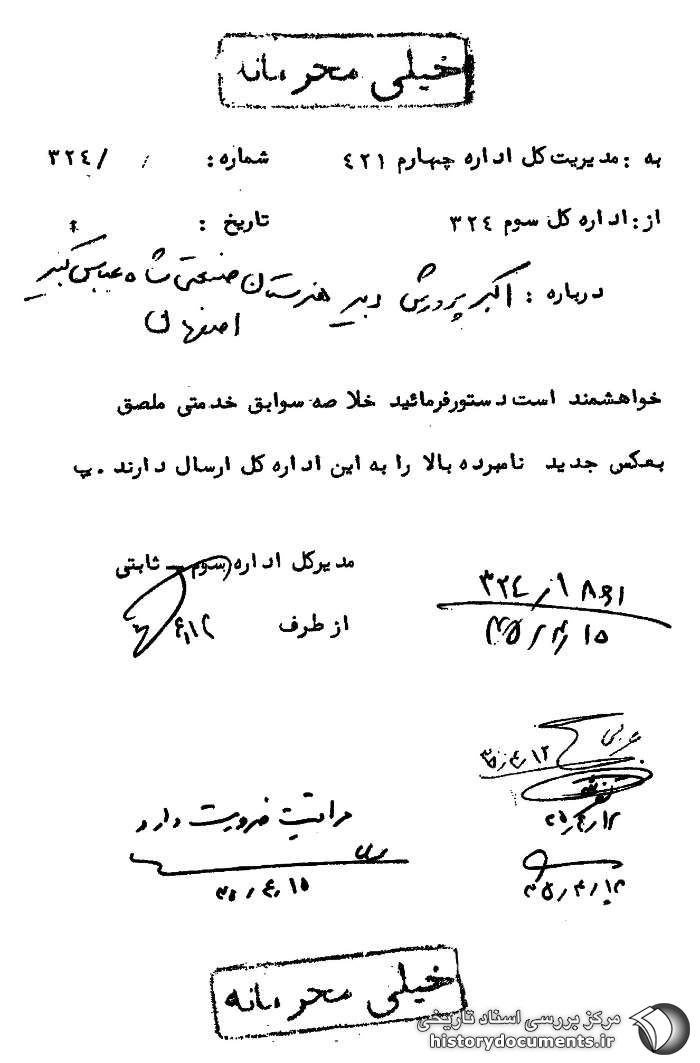 خیلی محرمانه
به : مدیریت کل اداره چهارم ٤٢١ شماره : / /٣٢٤
از : اداره کل سوم ٣٢٤ تاریخ :
درباره : اکبر پرورش دبیر هنرستان صنعتی شاه عباس کبیر
اصفهان
خواهشمند است دستور فرمائید خلاصه سوابق خدمتی ملصق
بعکس جدید نامبرده بالا را به این اداره کل ارسال دارند . پ
مدیرکل اداره سوم - ثابتی
از طرف
٣٥/٤/١٥
٣٥/٤/١٢
٣٥/٤/١٢
مراقبت ضرورت دارد
٣٥/٤/١٢
٣٥/٤/١٥
خیلی محرمانه
مرکز بررسی اسناد تاریخی
historydocuments.ir